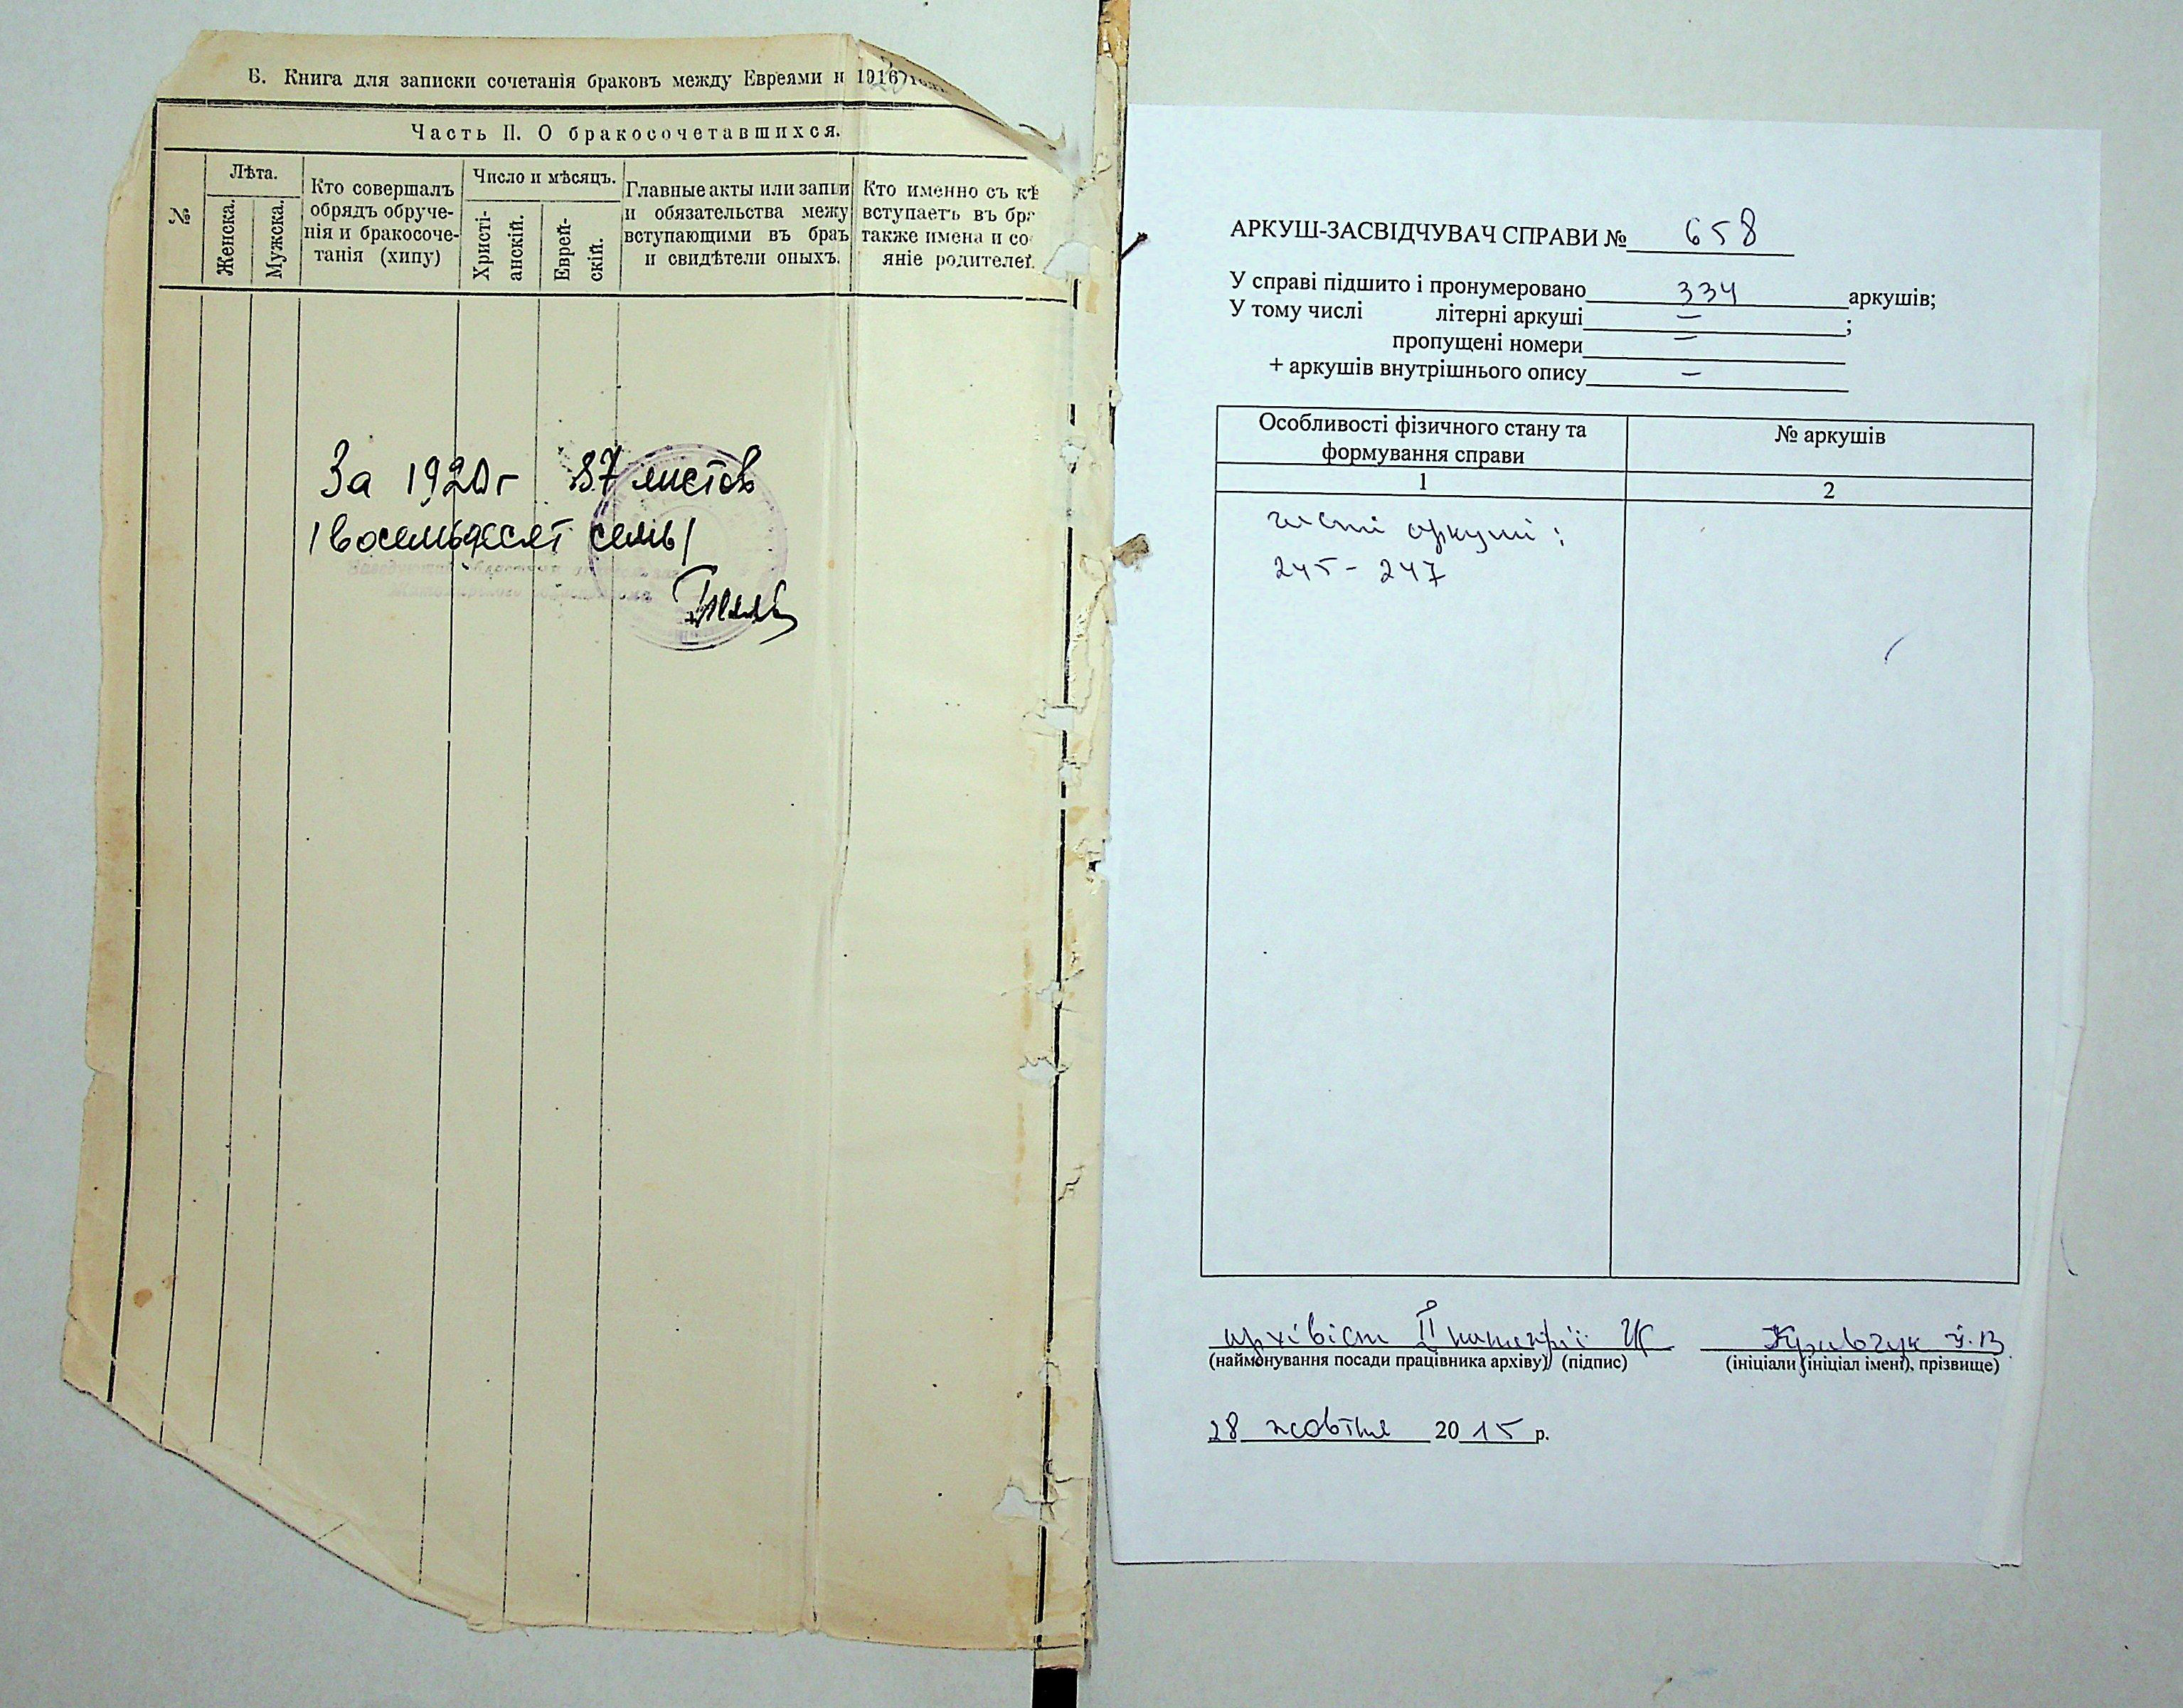 Б. Книга для записки сочетанія браковъ между Евреями н 1916
Часть II. О бракосочетавшихся.
№
Лѣта.
Женска.
Мужска.
Кто совершалъ
обрядъ обруче-
нія и бракосоче-
танія (хипу)
Число и мѣсяцъ.
Христі-
анскій.
Еврей-
скій.
Главные акты или запи
и обязательства межу
вступающими въ брак
и свидѣтели оныхъ.
Кто именно съ кѣ
вступаетъ въ бра
также имена и со
яніе родителей.
За 1920 г 87 листов
/восемьдесят семь/
АРКУШ-ЗАСВІДЧУВАЧ СПРАВИ № 658
У справі підшито і пронумеровано 334 аркушів;
У тому числі літерні аркуші – ;
пропущені номери –
+ аркушів внутрішнього опису –
Особливості фізичного стану та
формування справи
№ аркушів
1
2
чисті аркуші:
245 - 247
архівіст II категорії Кравчук
(найменування посади працівника архіву) (підпис) (ініціали (ініціал імені), прізвище)
28 жовтня 2015 р.